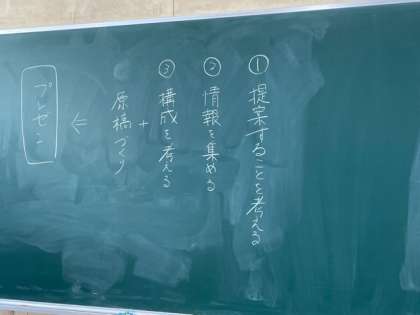 ①提案することを考える
②情報を集める
③構成を考える
+
原稿づくり
⇐
プレゼン